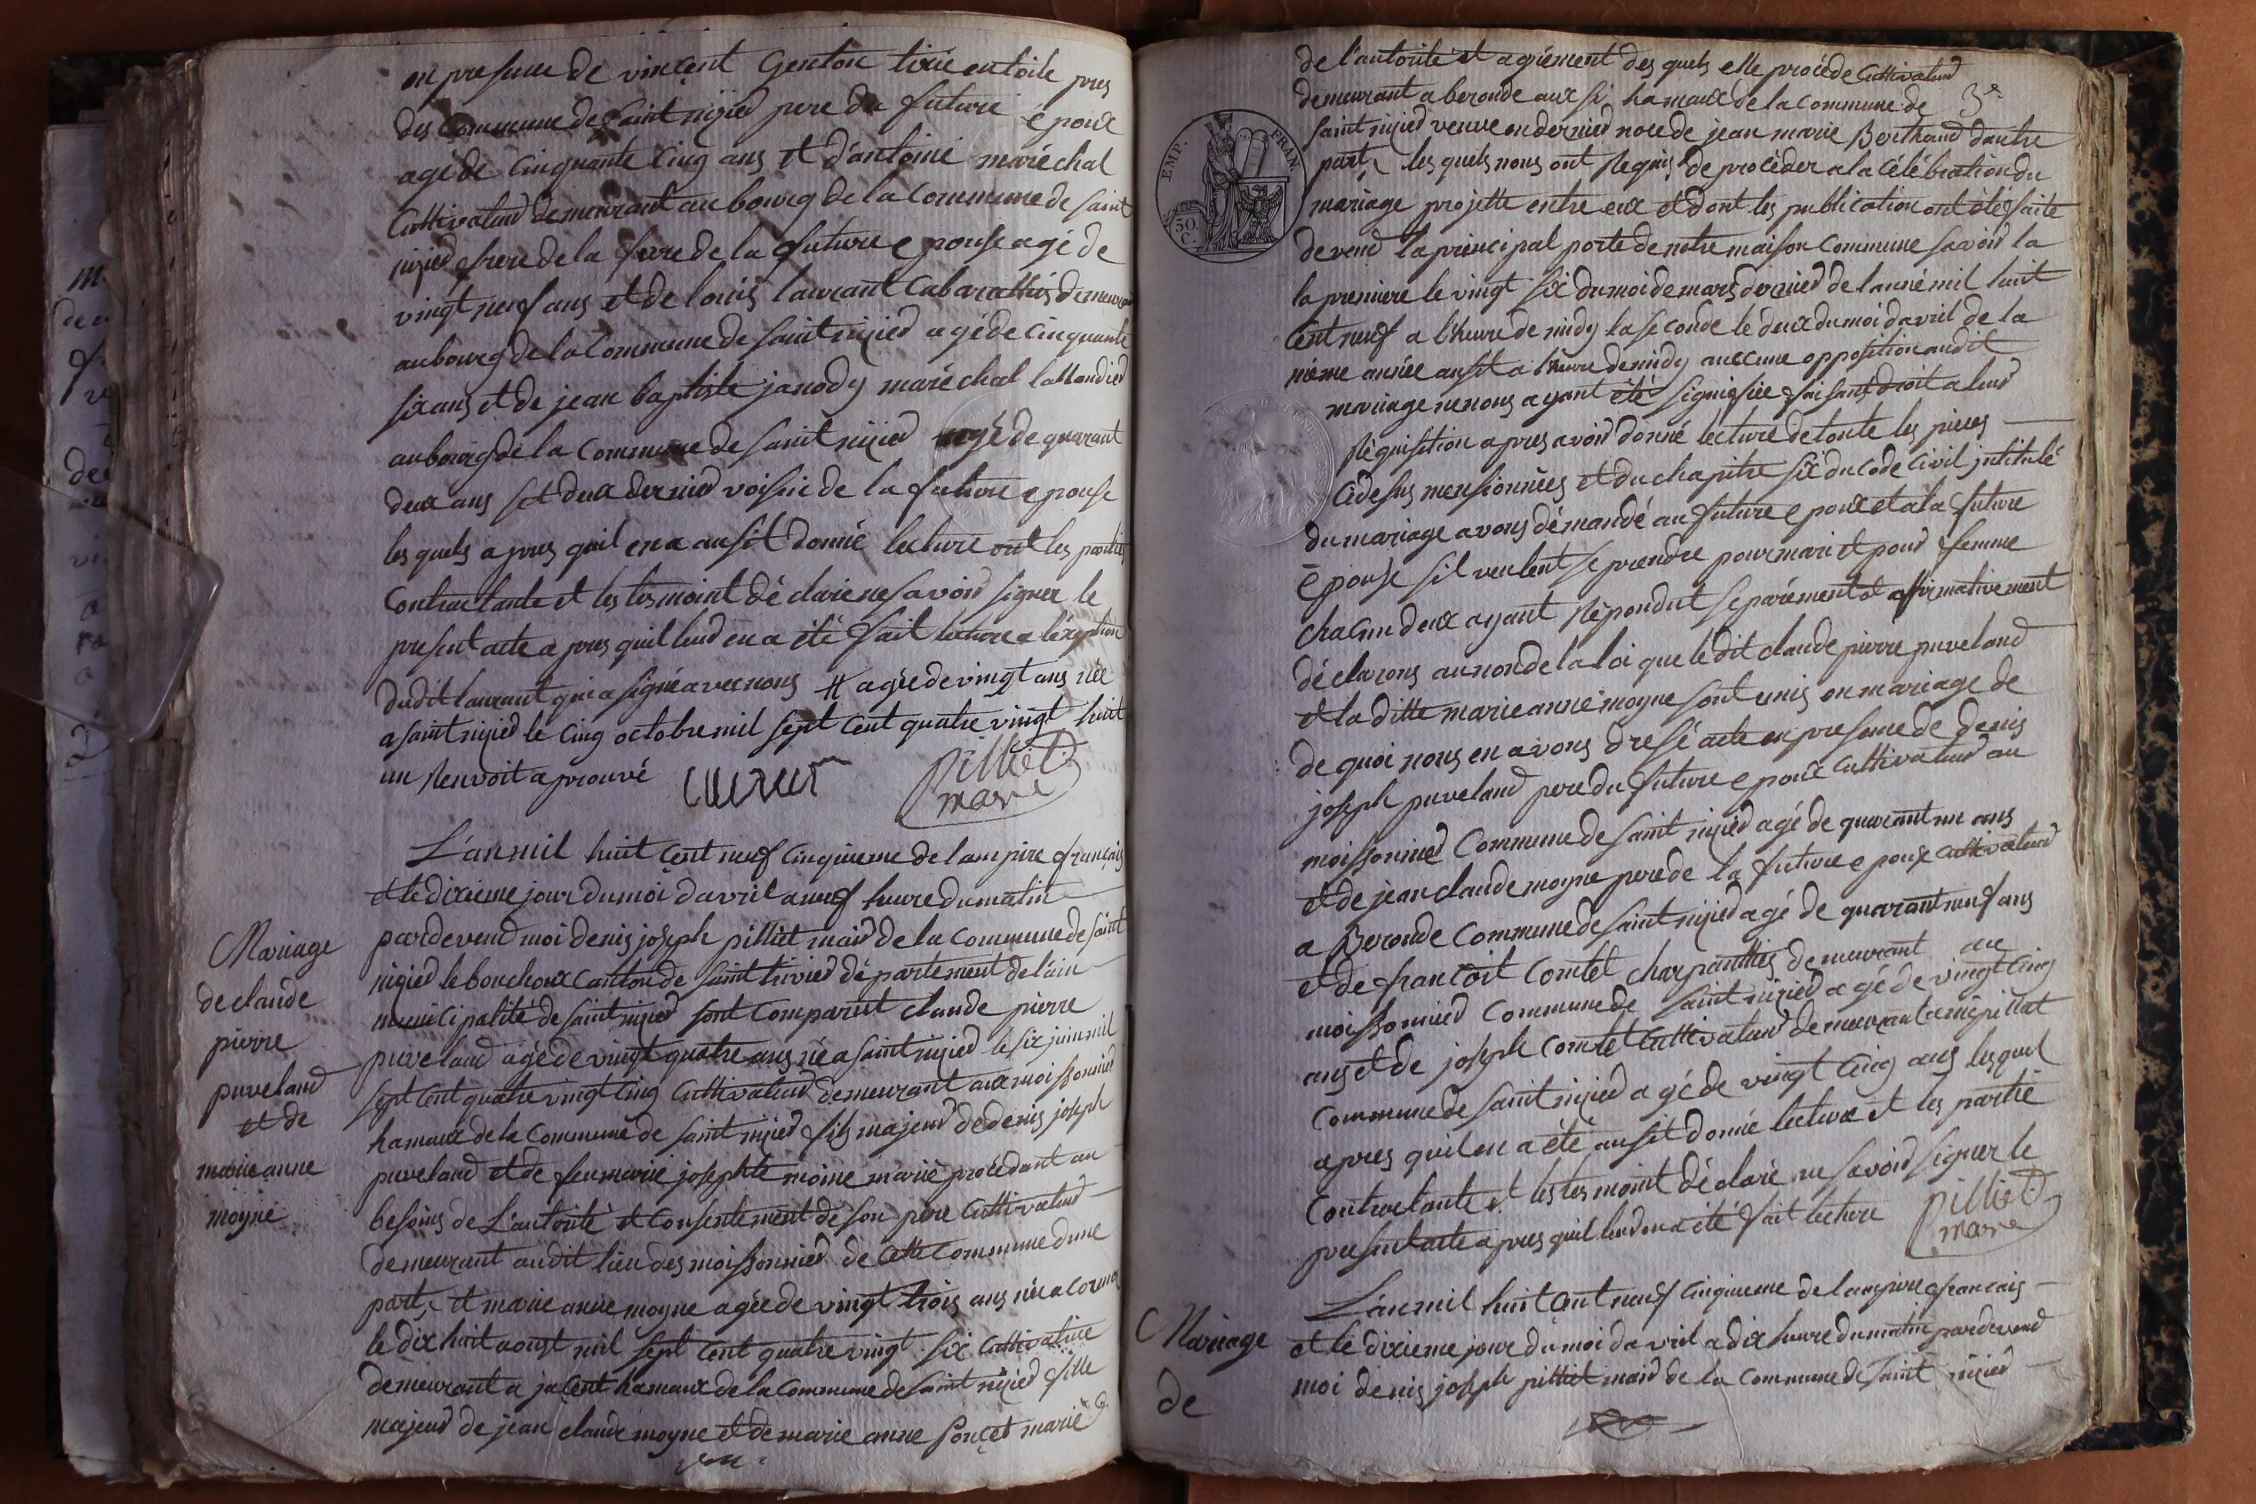 en presence de vincent Genton tixié en toile pres
des commune de saint nizied pere du future époux
agé de cinquante cinq ans et d'antoine maréchal
Cultivateur demeurant au bourg de la Commune de saint
nizied frere de la frere de la future epouse agé de
vingt neuf ans et de louis laurant Cabarattiés demeurant
au bourg de la Commune de saint nizied agé de cinquante
six ans et de jean baptiste janody maréchal tallandied
au bourg de la Commune de saint nizied agé de quarant
deux ans set deux dernied voisin de la future epouse
les quels apres quil en a ausit donné lecture ont les partie
Contractante et les tesmoint déclaré ne savoir signer le
present acte apres quil leud en a été fait lecture a léxeption
dudit laurant qui a signé avec nous # agée de vingt ans née
a saint nizied le cinq octobre mil sept cent quatre vingt huit
un Renvoit aprouvé Pilliet
mare
L'an mil huit cent neuf cinquieme de lampire français
et le dixieme jour du moi davril a neuf heure du matin
pardevend moi denis joseph pilliet maid de la Commune de saint
nizied le bouchoux canton de saint trivied département de l'ain
municipalité de saint nizied sont Comparut claude pierre
puveland agé de vingt quatre ans né a saint nizied le six juin mil
sept cent quatre vingt cinq Cultivateur demeurant aux moissonnied
hamaux de la Commune de saint nizied fils majeur de denis joseph
puveland et de feu marie josephte moine marié procédant au
besoins de L'autorité et Consentement de son pere Cultivateur
demeurant audit lieu des moissonnied de cette Commune d'une
part, et marie anne moyne agée de vingt trois ans née a Cormoz
le dix huit aoust mil sept cent quatre vingt six Cultivatrice
demeurant a jacent hamaux de la Commune de saint nizied fille
majeur de jean claude moyne et de marie anne Ponçet marié
Mariage
de claude
pierre
puveland
et de
marie anne
moyne
de l'autorité et agrément des quels elle procéde Cultivateur
demeurant a beronde aux si hamaux de la Commune de
saint nizied veuve en dernied noce de jean marie Berthaud dautre
part, les quels nous ont Requis de procéder a la célébration du
mariage projetté entre eux et dont les publication ont été faite
devend la principal porte de notre maison Commune savoir la
la premiere le vingt six du moi de mars dernied de lanné mil huit
Cent neuf a l'heure de midy la seconde le deux du moi davril de la
même année ausit a l'heure de midy auccune opposition audit
mariage ne nous ayant été signiefiée faisant droit a leur
Réquisition apres avoir donné lecture de toute les pieces
cidesus mensionnées et du chapitre six du Code civil intitulé
du mariage avons démandé au future epoux et a la future
épouse sil veulent se prendre pour mari et pour femme
chacun deux ayant Répondut separément et affirmativement
déclarons au non de la loi que le dit claude pierre puveland
et la ditte marie anne moyne sont unis en mariage de
de quoi nous en avons dresé acte en presence de denis
joseph puveland pere du future epoux Cultivateur au
moissonnied Commune de saint nizied agé de quarant un ans
et de jean claude moyne pere de la future epouse Cultivateur
a Beronde Commune de saint nizied agé de quarant neuf ans
et de francoit Comtet charpanttiés demeurant au
moissonnied Commune de saint nizied agé de vingt cinq
ans et de joseph Comtet Cultivateur demeurant a mépillat
Commune de saint nizied agé de vingt cinq ans lesquel
apres quil en a été ausit donné lecture et les partie
Contractante et les tesmoint déclaré ne savoir signer le
present acte apres quil leud en a été fait lecture Pilliet
mare
L'an mil huit cent neuf cinquieme de lampire français
et le dixieme jour du moi davril a dix heure du matin pardevend
moi denis joseph pilliet maid de la Commune de saint nizied
Mariage
de
EMP. FRAN.
50
C.